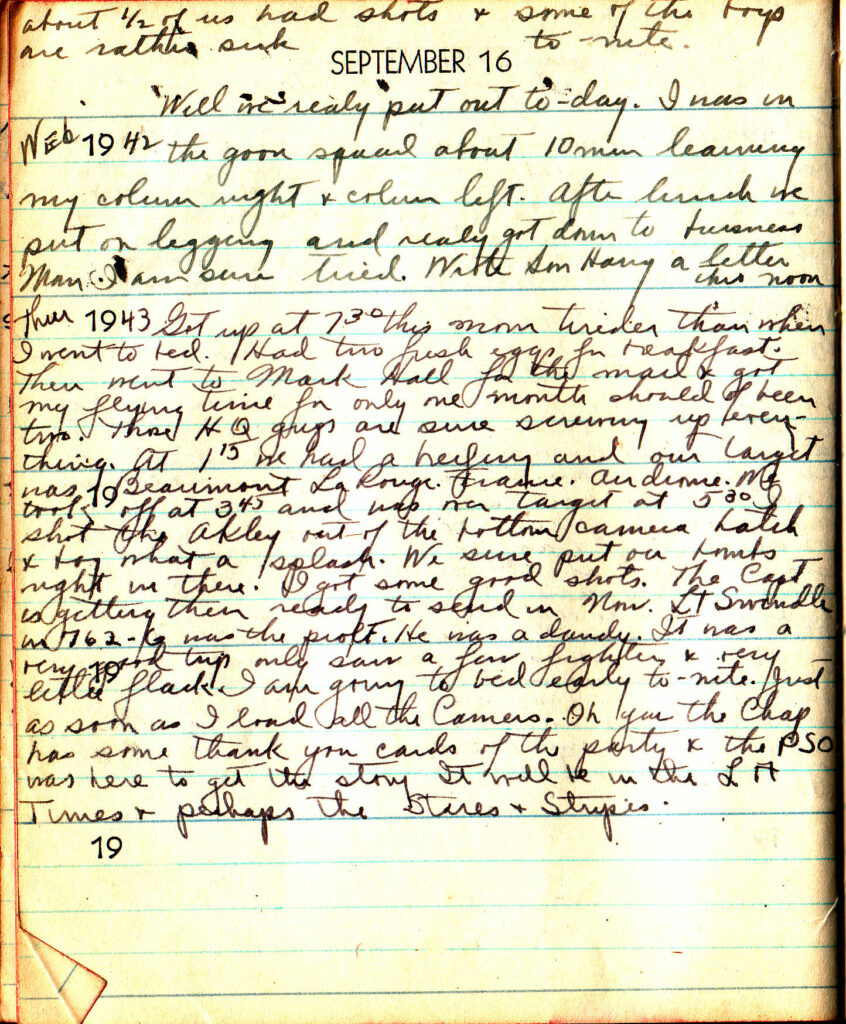 about 1/2 of us had shots & some of the boys
are rather sick to-nite.
SEPTEMBER 16
Well we realy put out to-day. I was in
Wed 1942 the goon squad about 10 min learning
my colum right & colum left. After lunch we
put on legging and realy got down to buisness
Man I am sure tired. Wrote Son Harry a letter
this noon
Thur 1943 Got up at 7 30 this morn tireder than when
I went to bed. Had two fresh eggs for breakfast.
Then went to Mark Hall for the mail & got
my flying time for only one month should of been
two. Those H Q guys are sure screwing up every-
thing. At 1 15 we had a briefing and our target
was Beaumont La Rouge. France. Airdrome. We
19
took off at 3 45 and was over target at 5 30 I
shot the Akley out of the bottom camera hatch
& boy what a splash. We sure put our bombs
right in there. I got some good shots. The Capt
is getting them ready to send in Now. Lt Swendle
in 762-K was the pilot. He was a dandy. It was a
very good trip only saw a few fighters & very
19
little flack. I am going to bed early to-nite. Just
as soon as I load all the Camers. Oh yea the Chap
has some thank you cards of the party & the PSO
was here to get the story It will be in the L A
Times & perhaps the Stires & Stripes.
19